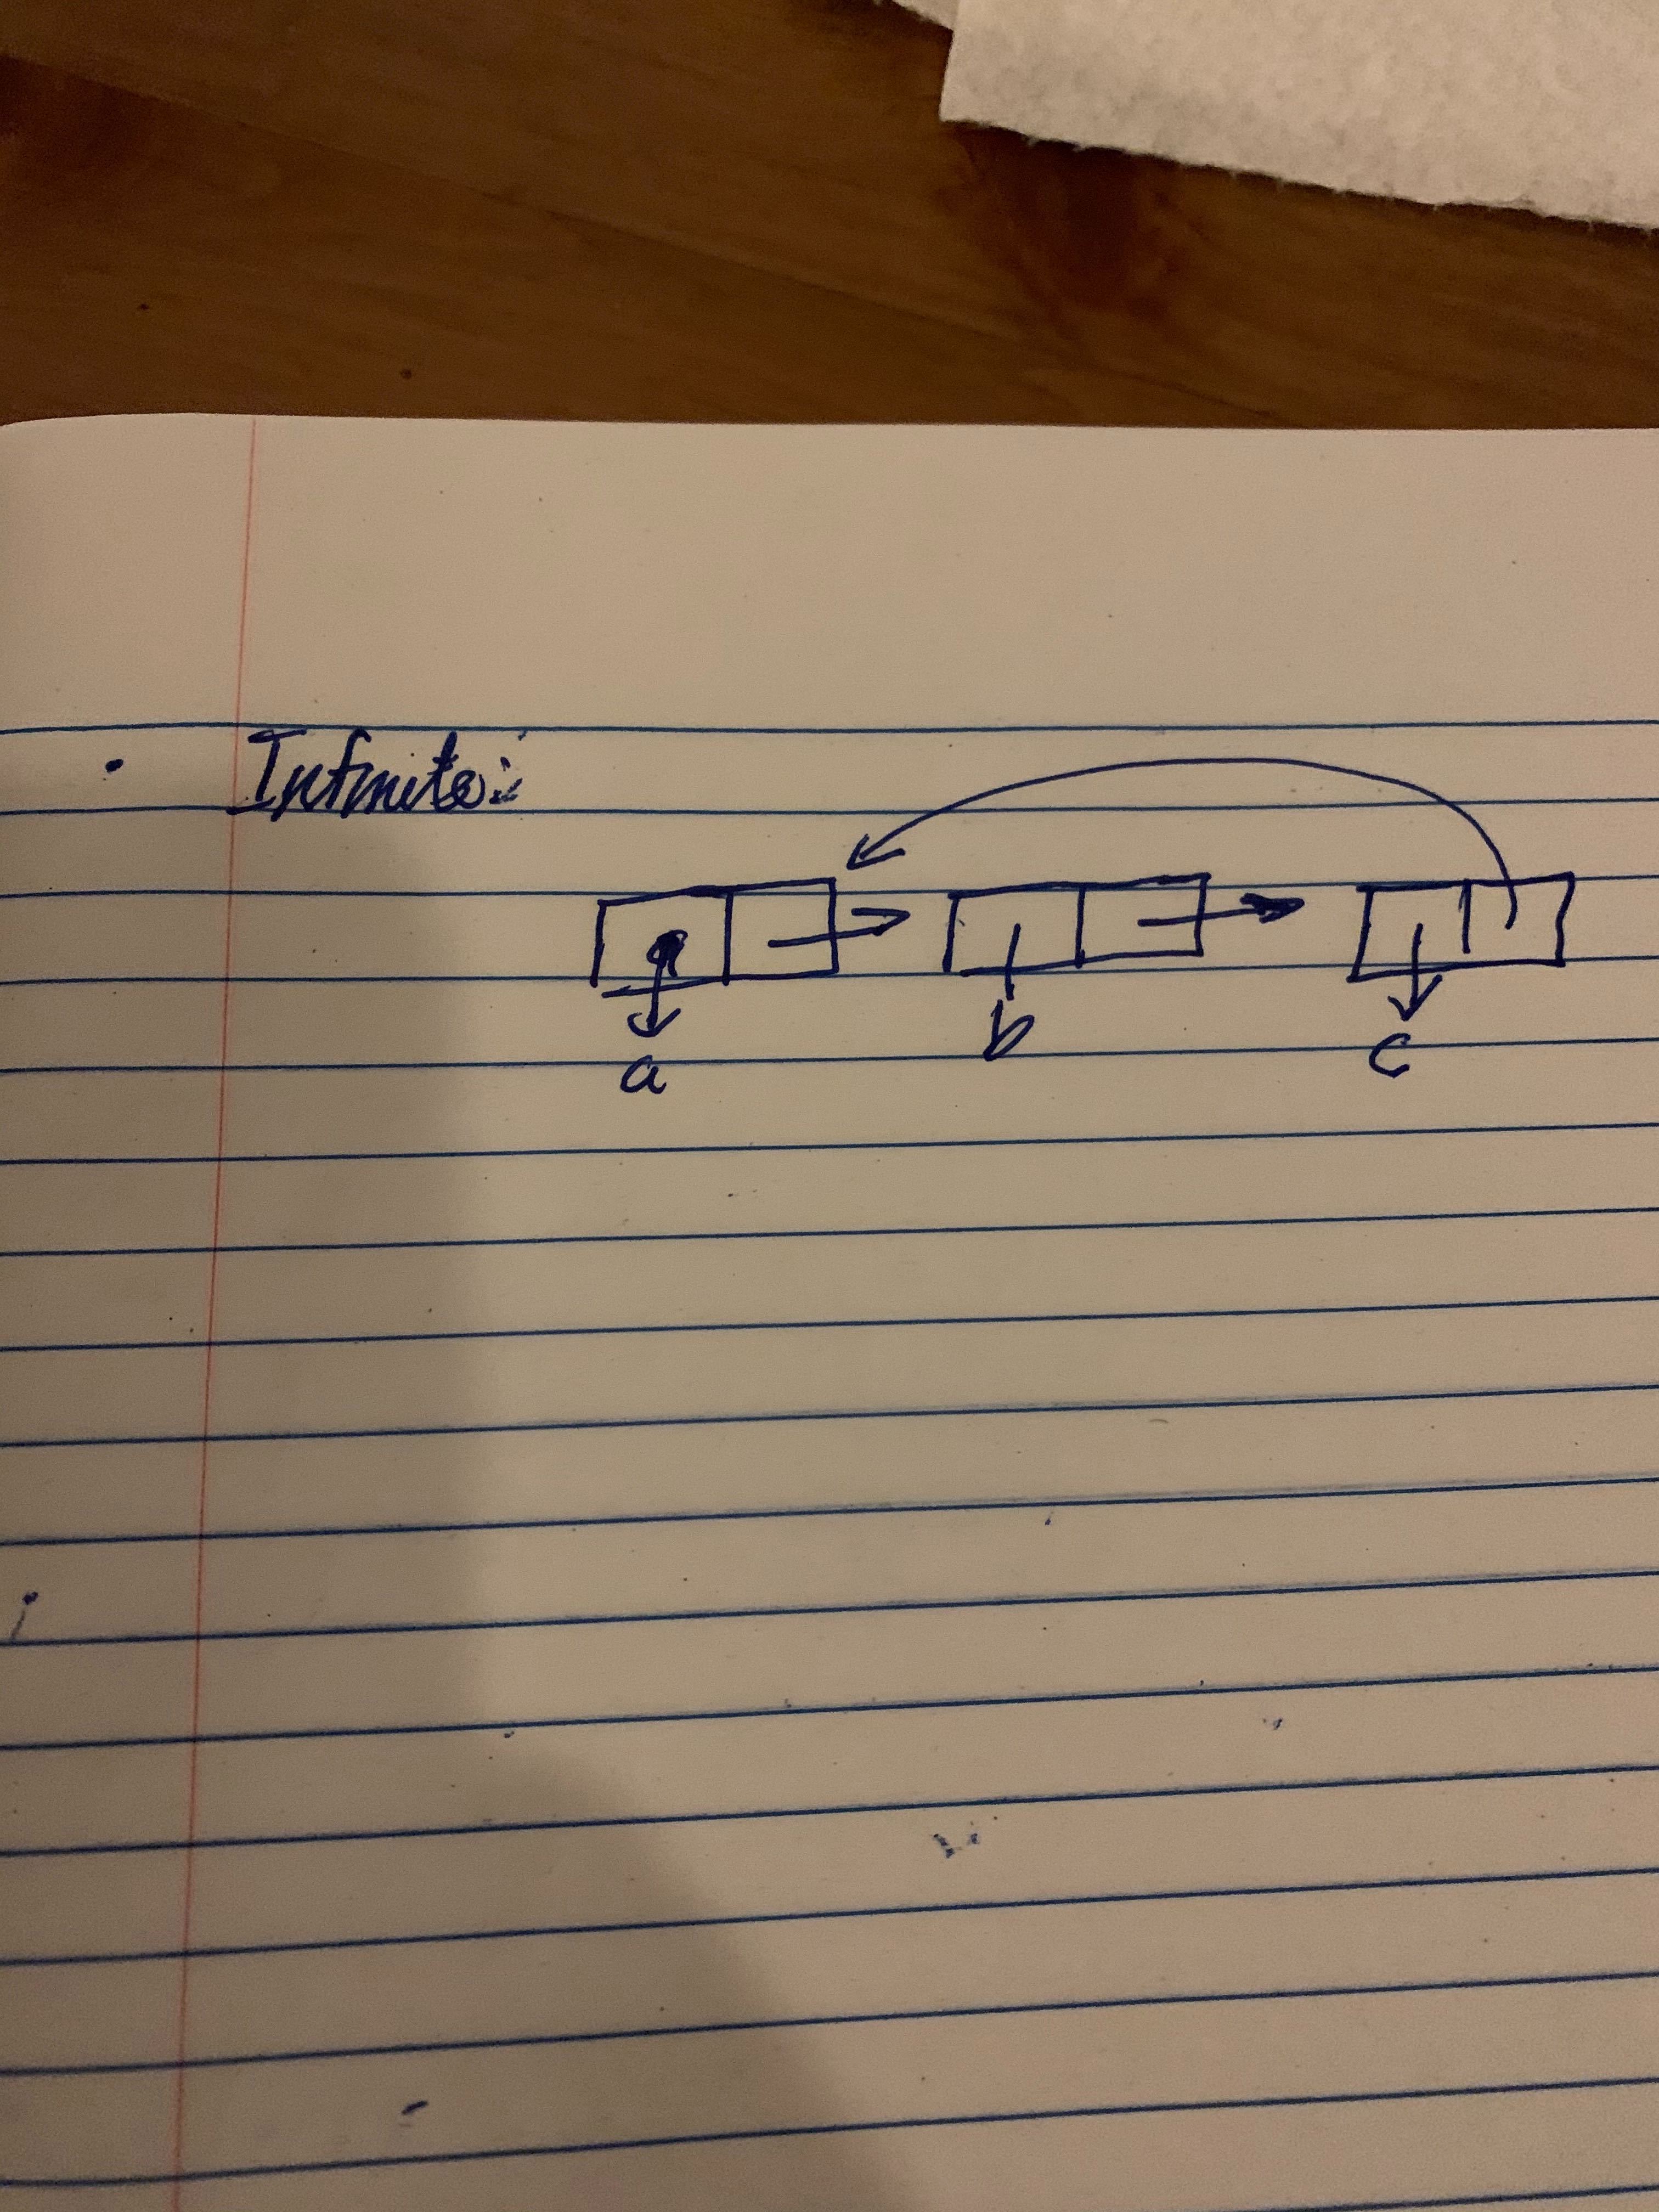 • Infinite:
a b c